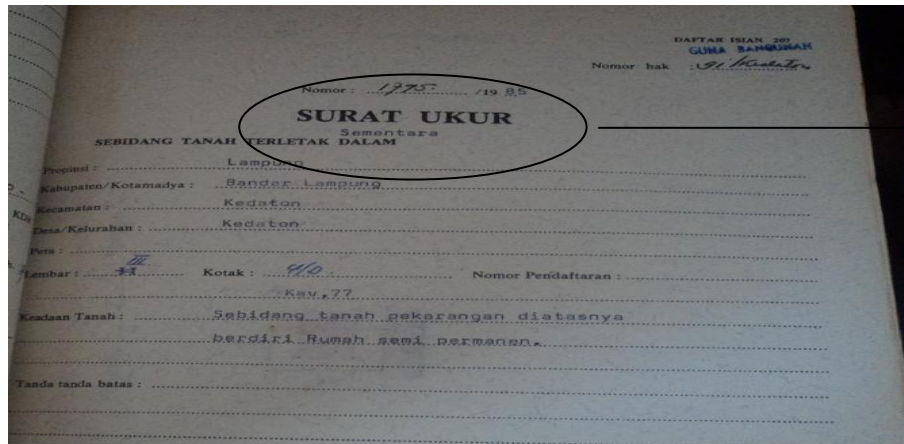 DAFTAR ISIAN 207
GUNA BANGUNAN
Nomor hak : 91/Kedaton
Nomor : 1775. /19 85
SURAT UKUR
Sementara
SEBIDANG TANAH TERLETAK DALAM
Propinsi : Lampung
Kabupaten/Kotamadya : Bandar Lampung
Kecamatan : Kedaton
Desa/Kelurahan : Kedaton
Peta :
Lembar : III Kotak : Nomor Pendaftaran :
Kav.77
Keadaan Tanah : Sebidang tanah pekarangan diatasnya
berdiri Rumah semi permanen.
Tanda tanda batas :